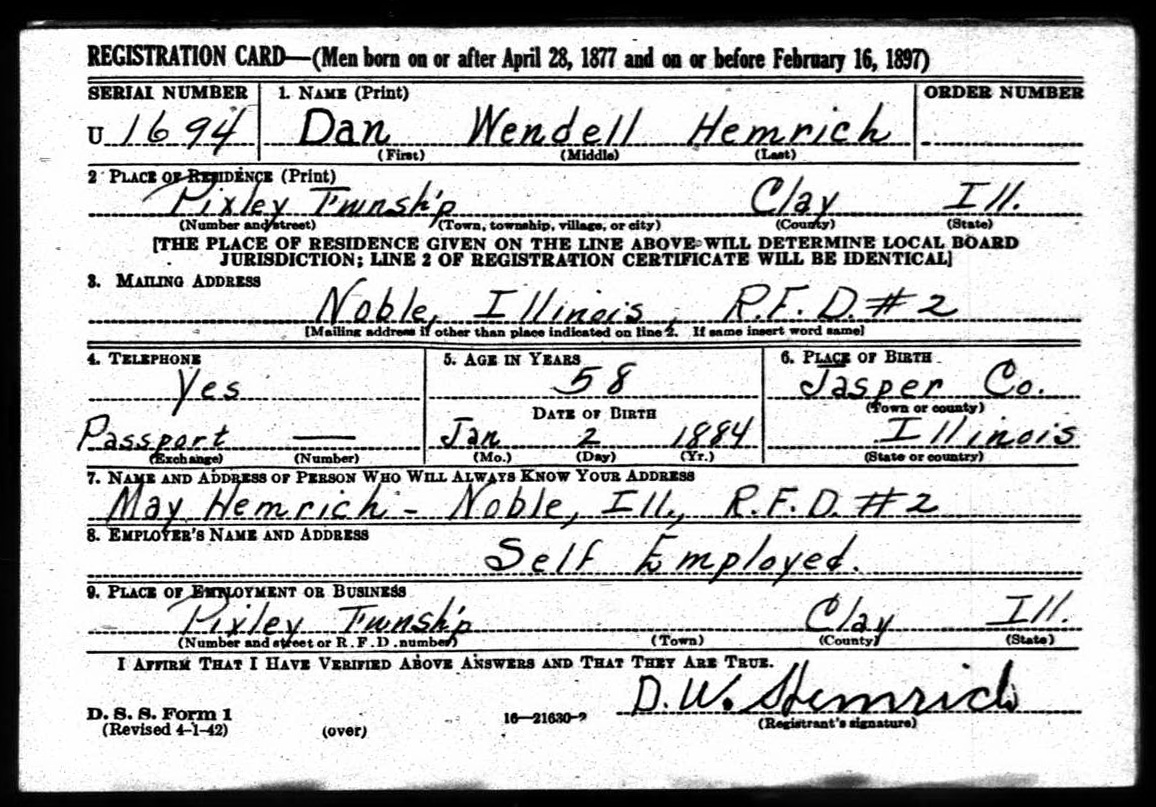 REGISTRATION CARD—(Men born on or after April 28, 1877 and on or before February 16, 1897)
SERIAL NUMBER 1. NAME (Print) ORDER NUMBER
U 1694 Dan Wendell Hemrich
(First) (Middle) (Last)
2 PLACE OF RESIDENCE (Print)
Pixley Twnsh'p Clay Ill.
(Number and street) (Town, township, village, or city) (County) (State)
[THE PLACE OF RESIDENCE GIVEN ON THE LINE ABOVE WILL DETERMINE LOCAL BOARD
JURISDICTION; LINE 2 OF REGISTRATION CERTIFICATE WILL BE IDENTICAL]
3. MAILING ADDRESS
Noble, Illinois, R.F.D. # 2
[Mailing address if other than place indicated on line 2. If same insert word same]
4. TELEPHONE 5. AGE IN YEARS 6. PLACE OF BIRTH
Yes 58 Jasper Co.
DATE OF BIRTH (Town or county)
Passport — Jan 2 1884 Illinois
(Exchange) (Number) (Mo.) (Day) (Yr.) (State or country)
7. NAME AND ADDRESS OF PERSON WHO WILL ALWAYS KNOW YOUR ADDRESS
May Hemrich - Noble, Ill., R.F.D. # 2
8. EMPLOYER'S NAME AND ADDRESS
Self Employed.
9. PLACE OF EMPLOYMENT OR BUSINESS
Pixley Twnsh'p Clay Ill.
(Number and street or R. F. D. number) (Town) (County) (State)
I AFFIRM THAT I HAVE VERIFIED ABOVE ANSWERS AND THAT THEY ARE TRUE.
D. W. Hemrich
D. S. S. Form 1
(Revised 4-1-42) (over) 16—21630-2 (Registrant's signature)